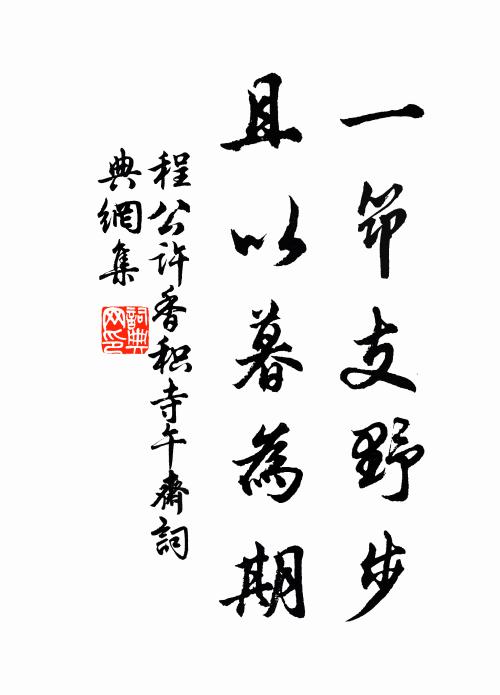 一笻支野步
且以暮為期
程公許香积寺午齋詞
典網集
詞典网印